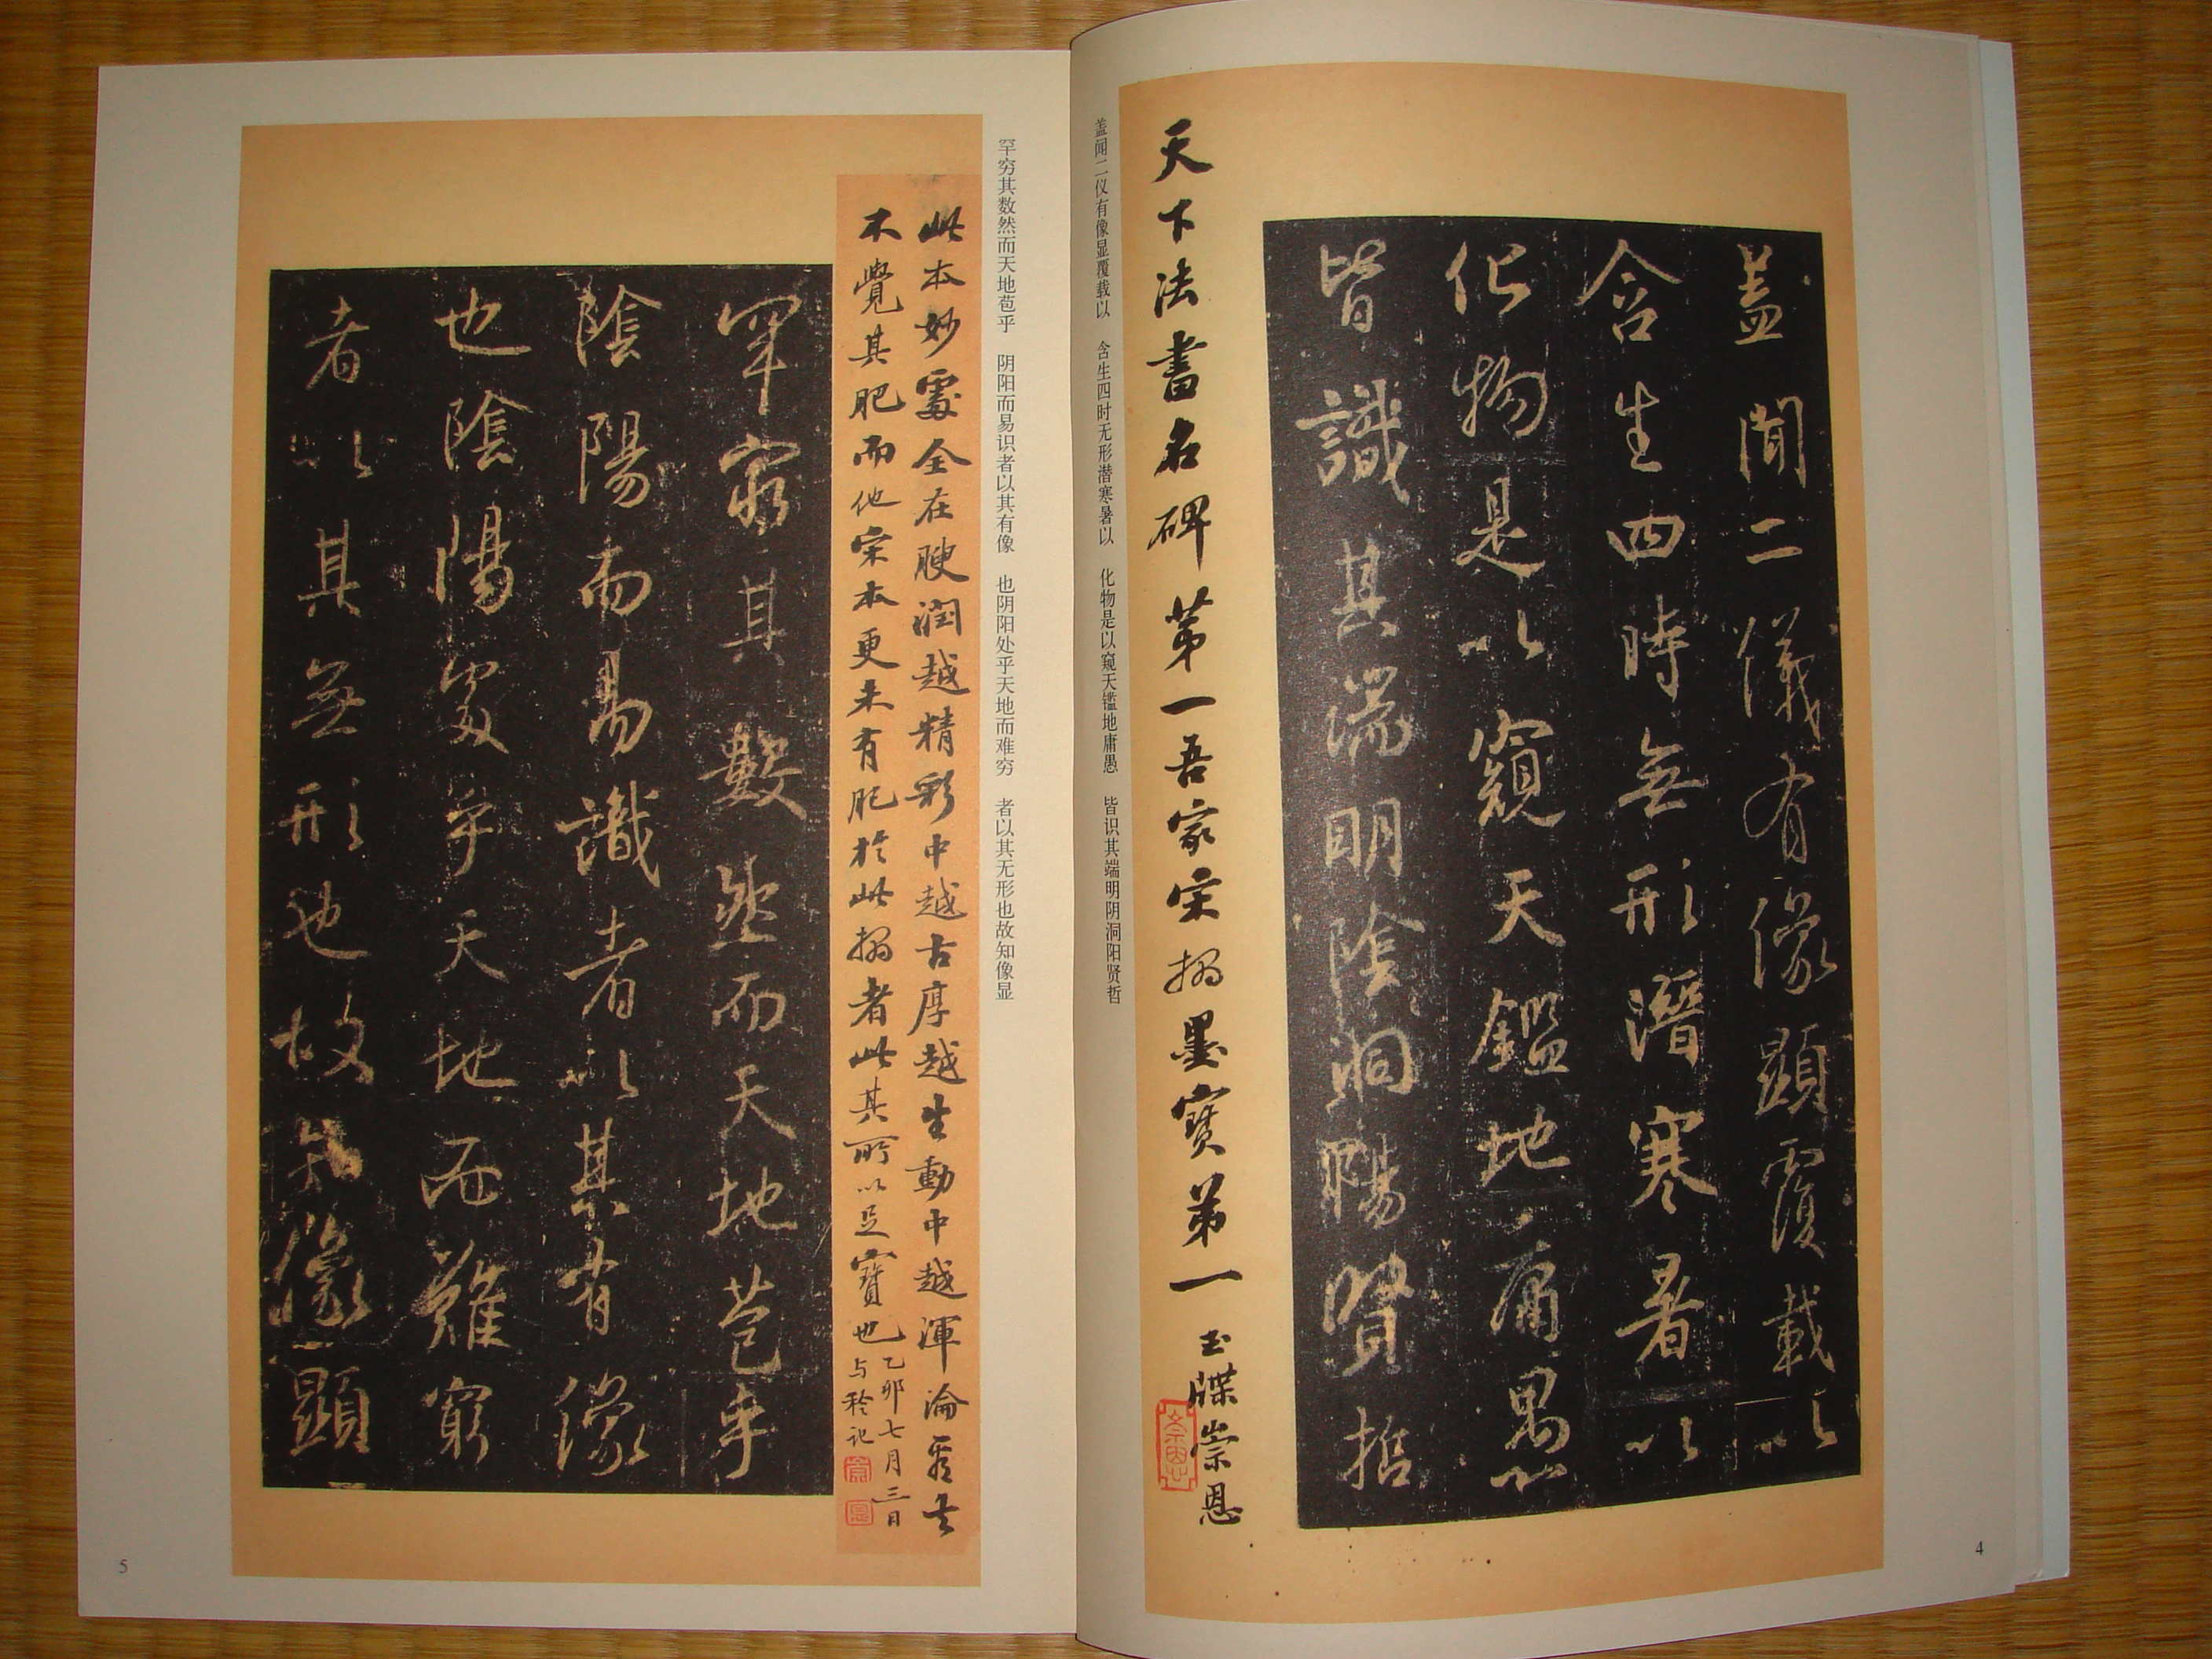 蓋聞二儀有像顯覆載以
含生四時無形潛寒暑以
化物是以窺天鑑地庸愚
皆識其端明陰洞陽賢哲
天下法書名碑第一吾家宋搨墨寶第一
玉牒崇恩
崇恩
盖闻二仪有像显覆载以 含生四时无形潜寒暑以 化物是以窥天鉴地庸愚 皆识其端明阴洞阳贤哲
4
罕穷其数然而天地苞乎 阴阳而易识者以其有像 也阴阳处乎天地而难穷 者以其无形也故知像显
此本妙處全在腴潤越精彩中越古厚越生動中越渾淪看去
不覺其肥而他宋本更未有肥於此搨者此其所以足寶也
乙卯七月三日
与稌記
罕窮其數然而天地苞乎
陰陽而易識者以其有像
也陰陽處乎天地而難窮
者以其無形也故知像顯
5